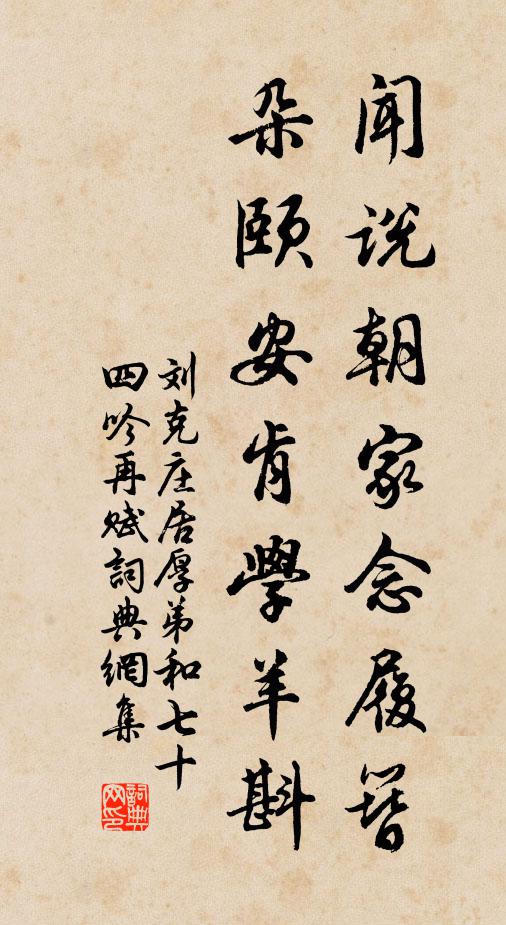 闻说朝家念履簪
朵颐安肯学羊斟
刘克庄居厚弟和七十
四吟再赋词典网集
词典网印